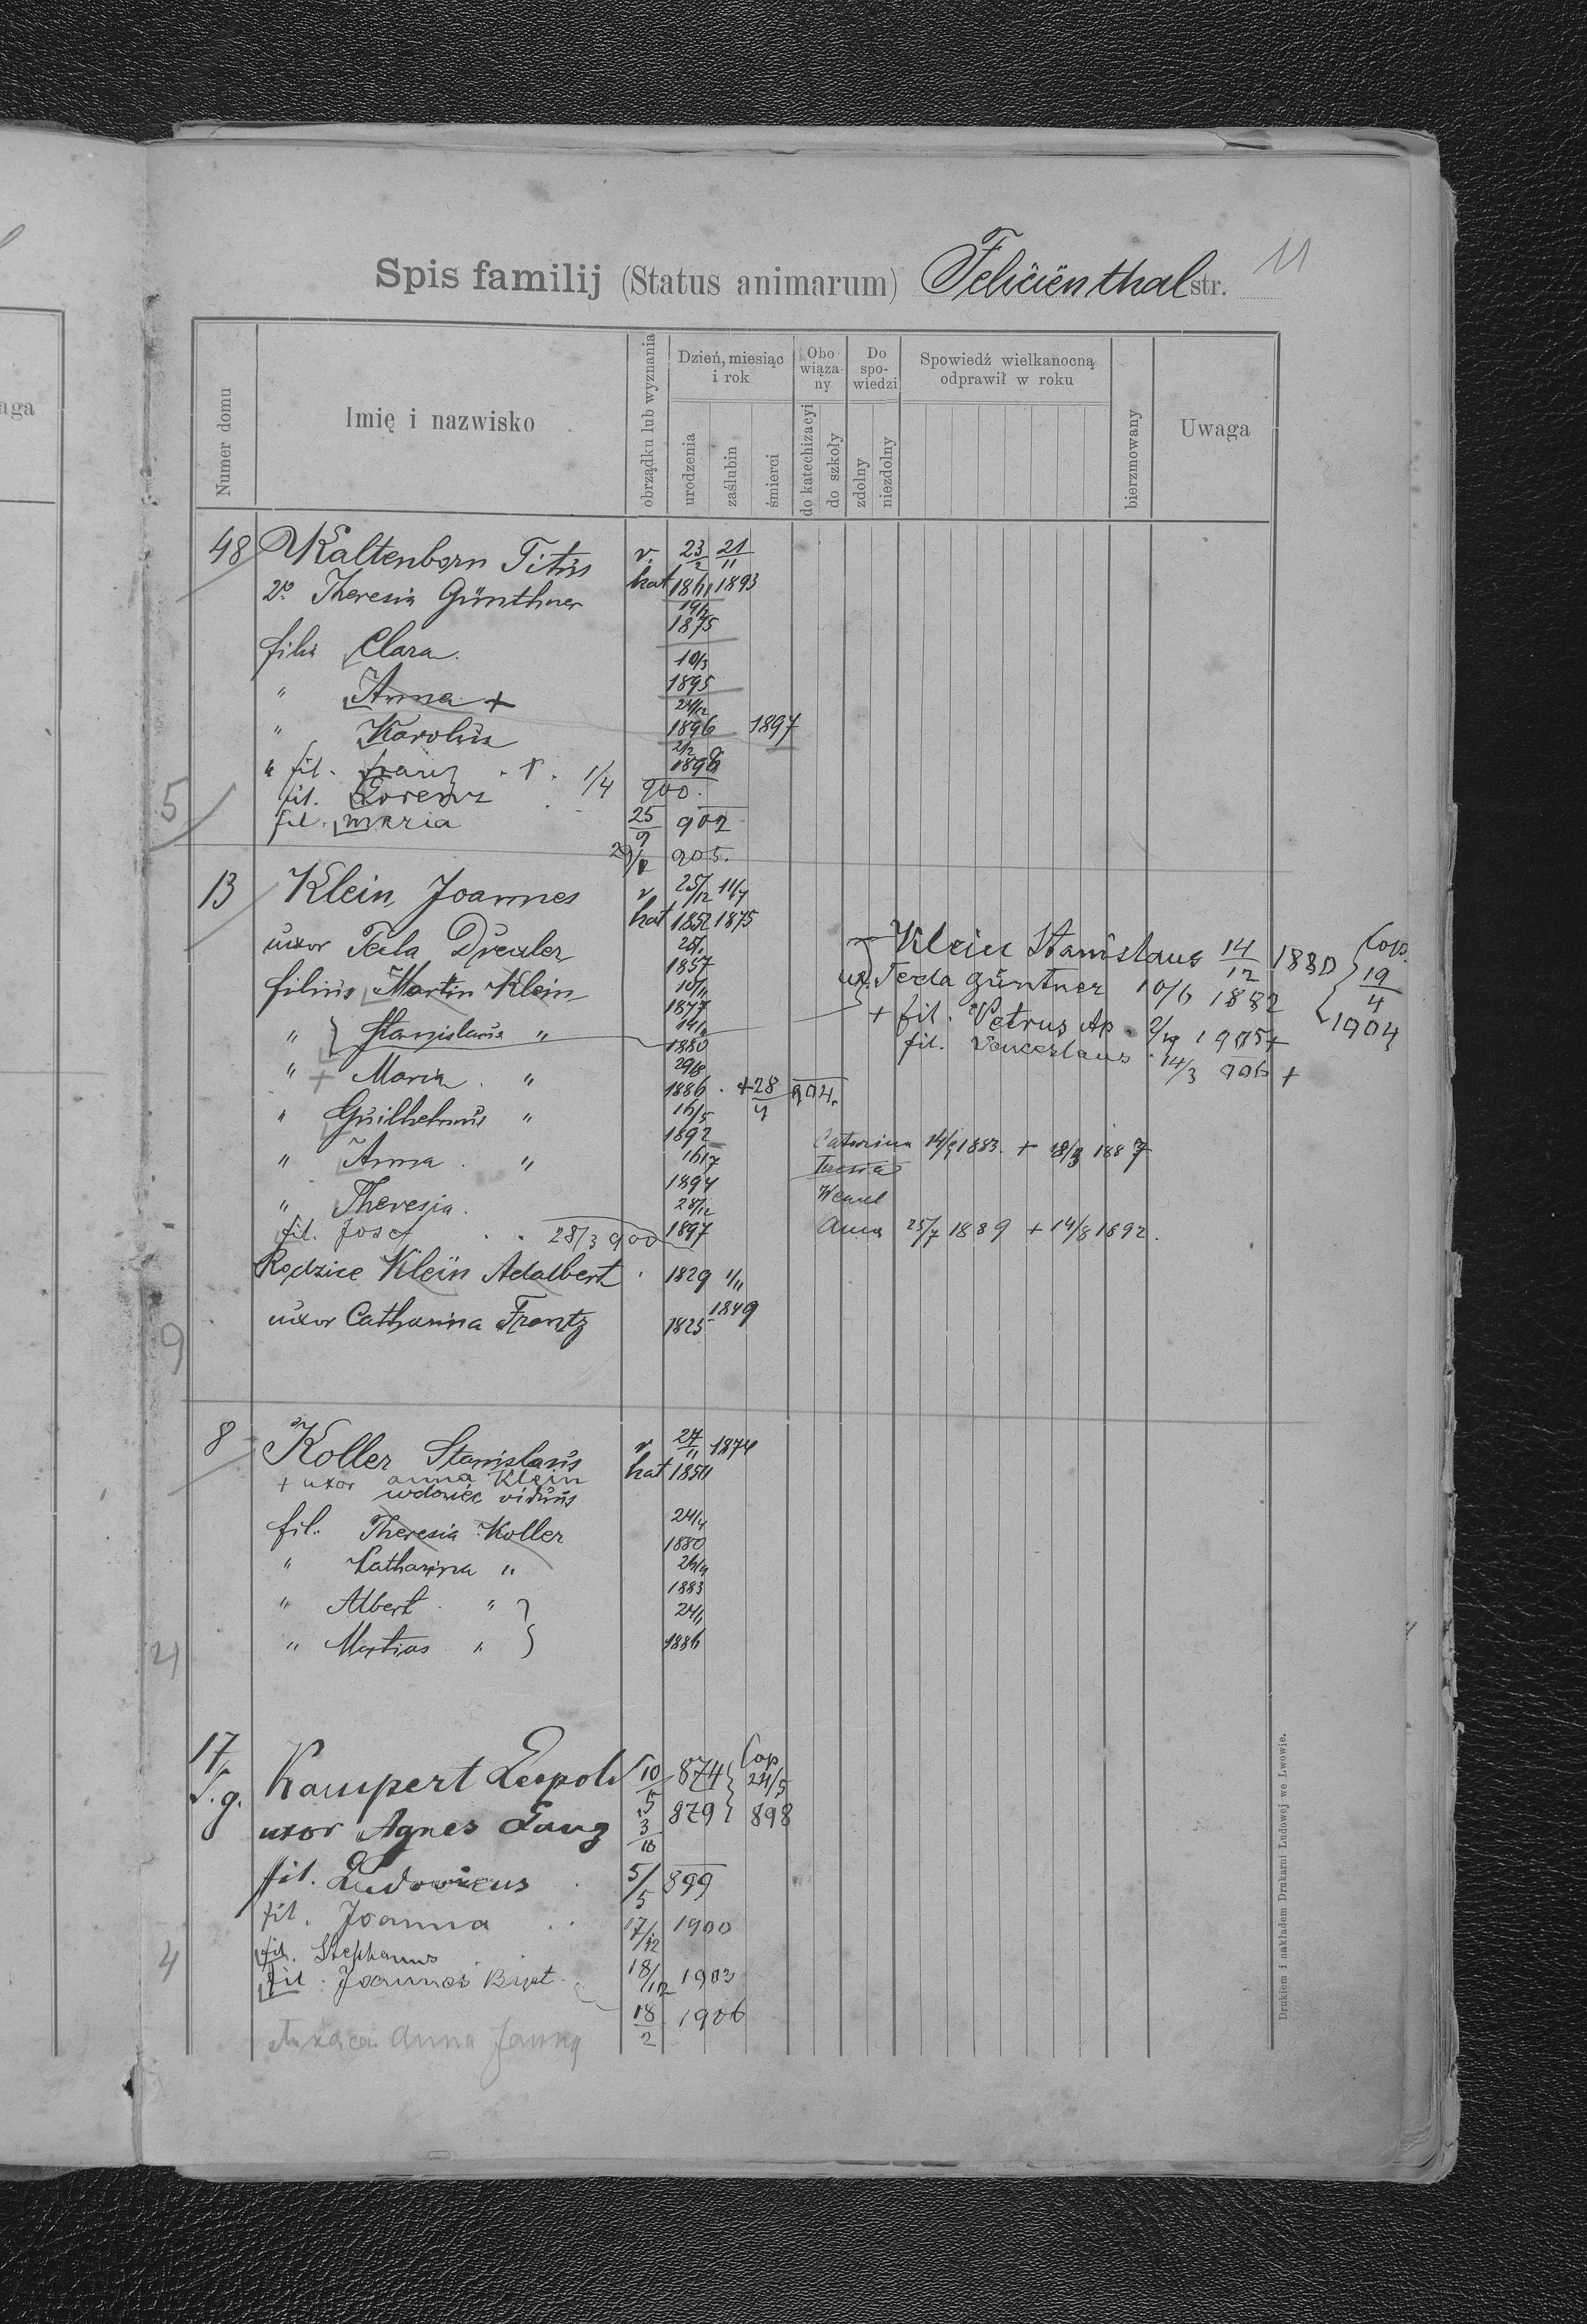 Spis familij (Status animarum) Felicienthal str. 11
aga
Numer domu
Imię i nazwisko
obrządku lub wyznania
Dzień, miesiąc i rok
urodzenia
zaślubin
śmierci
Obowiązany
do katechizacyi
do szkoły
Do spowiedzi
zdolny
niezdolny
Spowiedź wielkanocną odprawił w roku
bierzmowany
Uwaga
48 Kaltenborn Titus r. kat 23/2 1861 21/11 1893
2o Theresia Günthner 1875
filia Clara 10/3 1895
" Anna + 24/12 1896 1897
" Karolus 2/2
fil. 1/4 900.
fil. Lorenz 25/9 902
fil. Maria 905.
5
13 Klein, Joannes r. kat 25/12 1852 1875
uxor Tecla Drexler 1857
filius Martin Klein 1877
" Stanislaus " 1880
" + Maria " 29/8 1886 + 28/4 904.
" Guilhelmus " 16/5 1892
" Anna " 16/7 1894
" Theresia 28/12 1897
fil. Josef 28/3 900
Rodzice Klein Adalbert 1829 1/11 1849
uxor Catharina Frantz 1825
Klein Stanislaus 14/12 1880
ux. Tecla Güntner 10/6 1882
Cop. 19/4 1904
+ fil. Petrus Ap. 1905 +
fil. Venceslaus 14/3 906 +
Catarina 14/9 1883 + 1887
Teresia
Anna 25/7 1889 + 14/8 1892.
9
8 Koller Stanislaus r. kat 27/11 1851 1874
+ uxor Anna Klein
wdowiec viduus
fil. Theresia Koller 24/4 1880
" Catharina " 1883
" Albert " 24/1
" Matias " 1886
17
Kampert Leopold 10/5 874 Cop 24/5 898
uxor Agnes Lang 3/10 879
fil. Ludovicus 5/5 899
fil. Joanna 17/12 1900
fil. Stephanus 18/12 1903
fil. Joannes Bapt. 18/2 1906
4
Anna
Drukiem i nakładem Drukarni Ludowej we Lwowie.